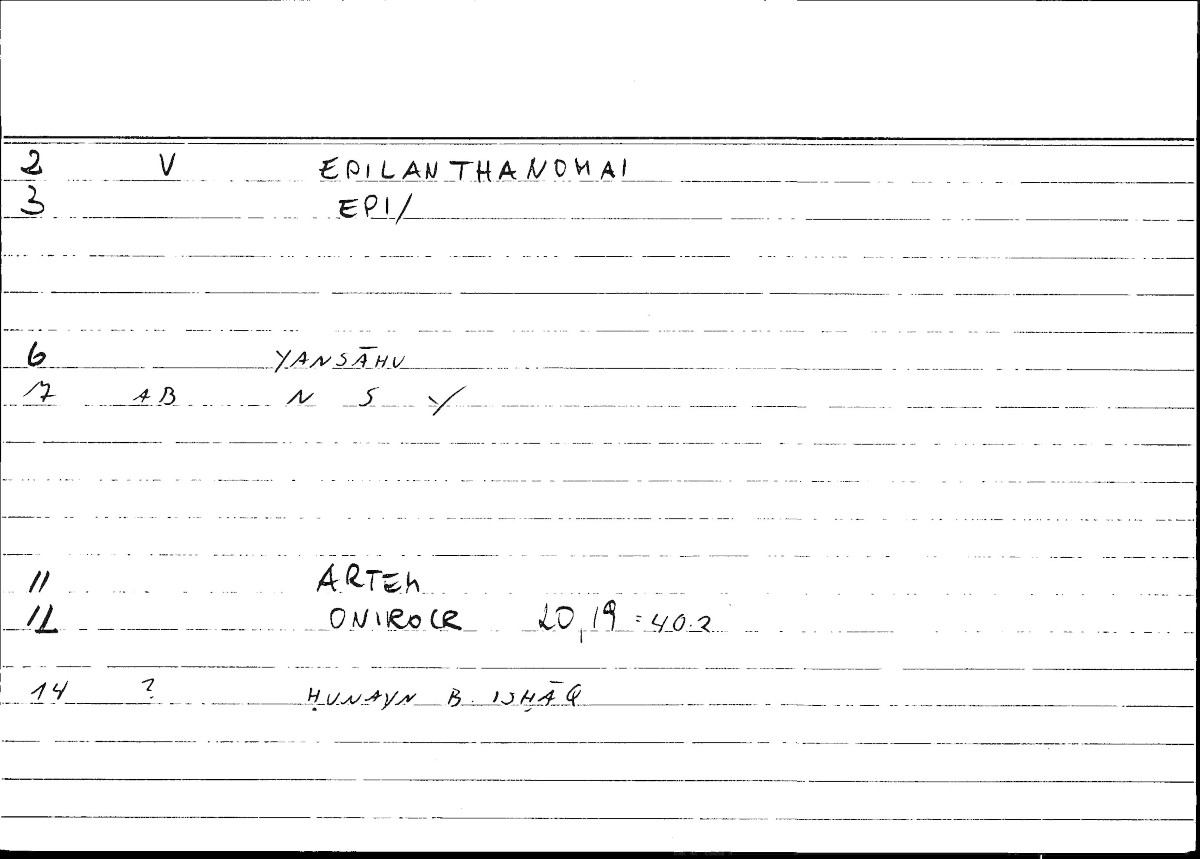 2 V EPILANTHANOMAI
3 EPI/
6 YANSĀHU
7 AB N S Y
11 ARTEM
12 ONIROCR 20,19 = 40.2
14 ? ḤUNAYN B. ISḤĀQ